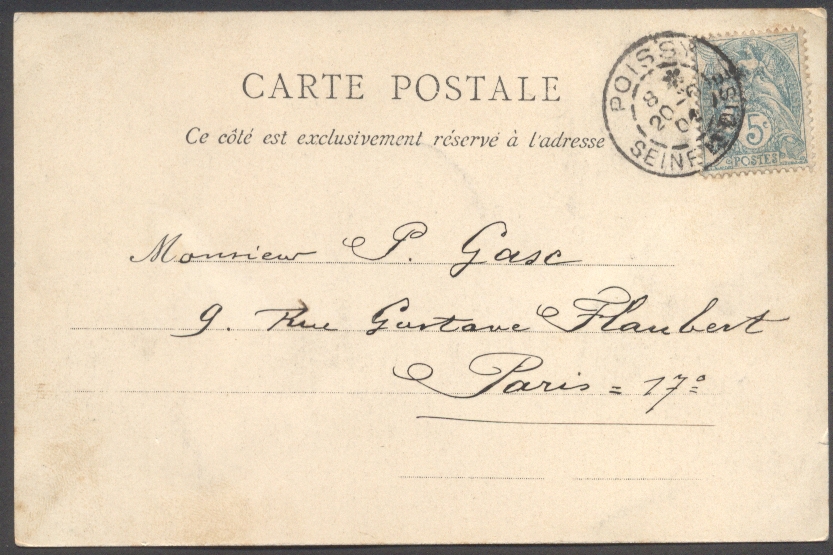 CARTE POSTALE
Ce côté est exclusivement réservé à l'adresse
POISSY
SEINE
5c
POSTES
Monsieur P. Gasc
9. Rue Gustave Flaubert
Paris = 17e